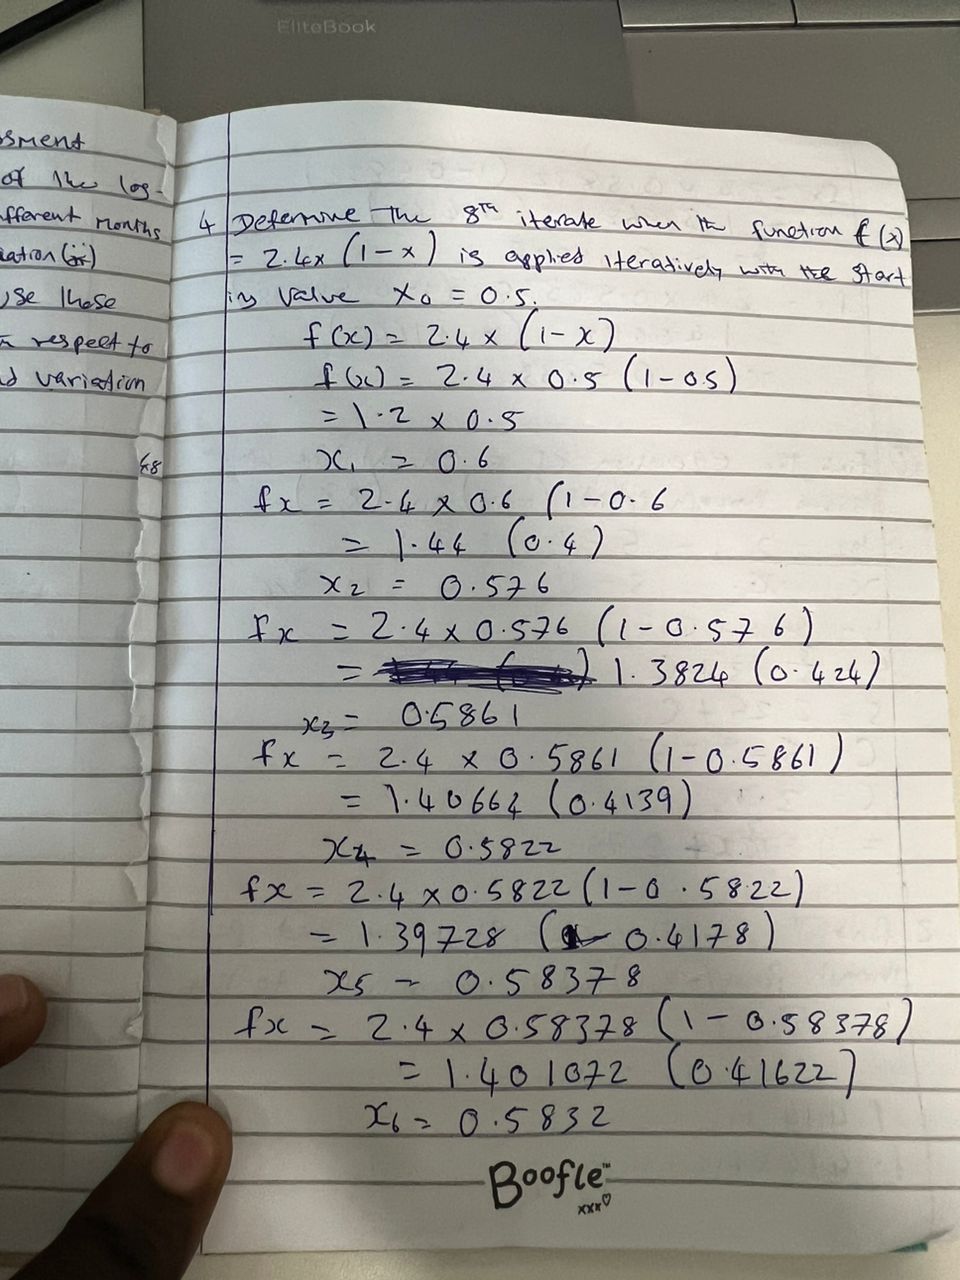 EliteBook
sment
of the log-
fferent months
iation
use these
respect to
variation
4 Determine the 8TH iterate when th function f(x)
= 2.4x (1-x) is applied iteratively with the start
in value x₀ = 0.5.
f(x) = 2.4 x (1-x)
f(x) = 2.4 x 0.5 (1-0.5)
= 1.2 x 0.5
x₁ = 0.6
fx = 2.4 x 0.6 (1-0.6
= 1.44 (0.4)
x₂ = 0.576
fx = 2.4 x 0.576 (1-0.576)
= 1.3824 (0.424)
x₃ = 0.5861
fx = 2.4 x 0.5861 (1-0.5861)
= 1.40664 (0.4139)
x₄ = 0.5822
fx = 2.4 x 0.5822 (1-0.5822)
= 1.39728 (0.4178)
x₅ = 0.58378
fx = 2.4 x 0.58378 (1-0.58378)
= 1.401072 (0.41622)
x₆ = 0.5832
Boofle™
xxx♡